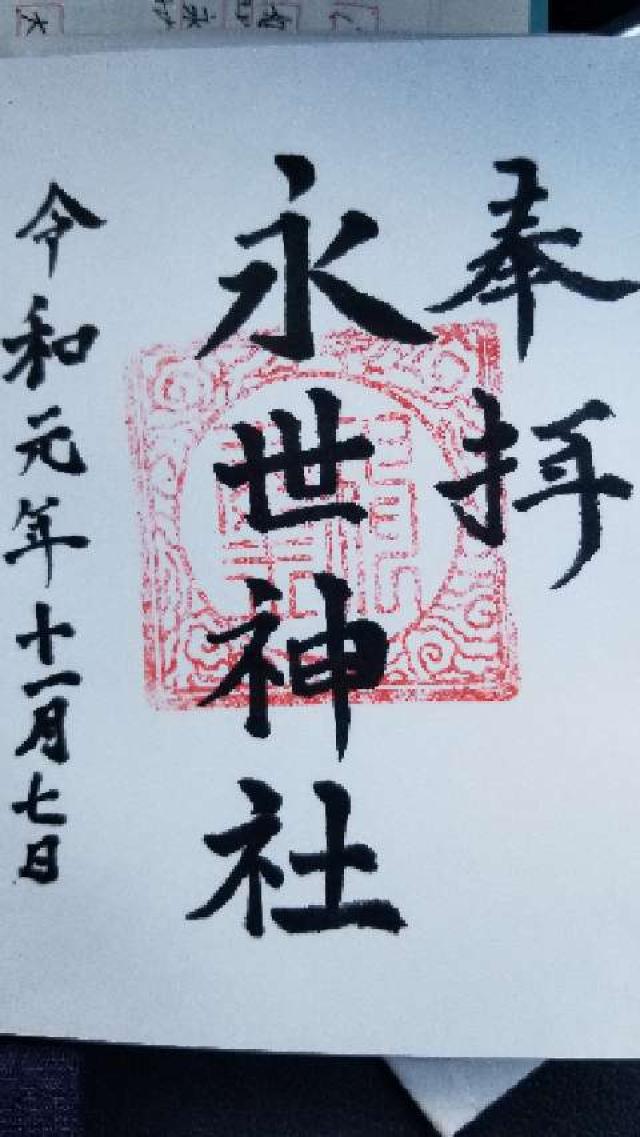 奉拝
永世神社
令和元年十一月七日